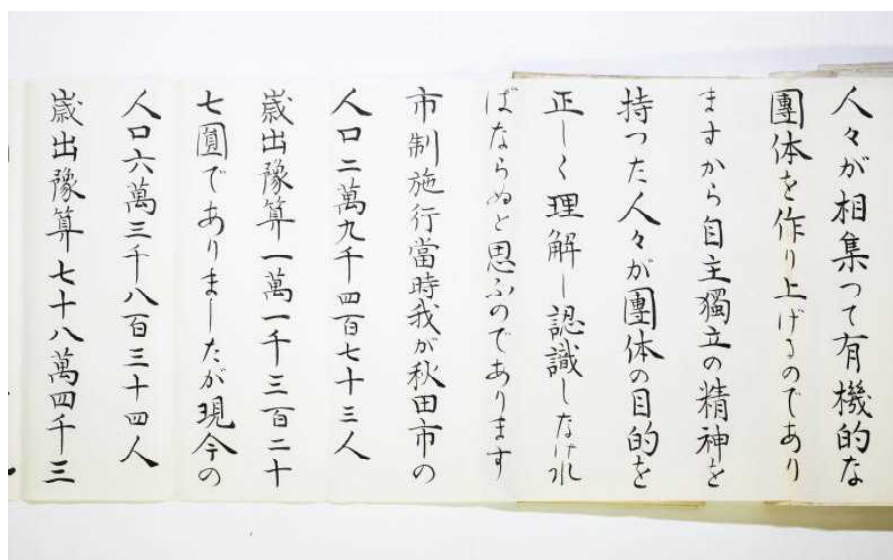 人々が相集つて有機的な
團体を作り上げるのであり
ますから自主獨立の精神を
持つた人々が團体の目的を
正しく理解し認識しなけれ
ばならぬと思ふのであります
市制施行當時我が秋田市の
人口二萬九千四百七十三人
歳出豫算一萬一千三百二十
七圓でありましたが現今の
人口六萬三千八百三十四人
歳出豫算七十八萬四千三